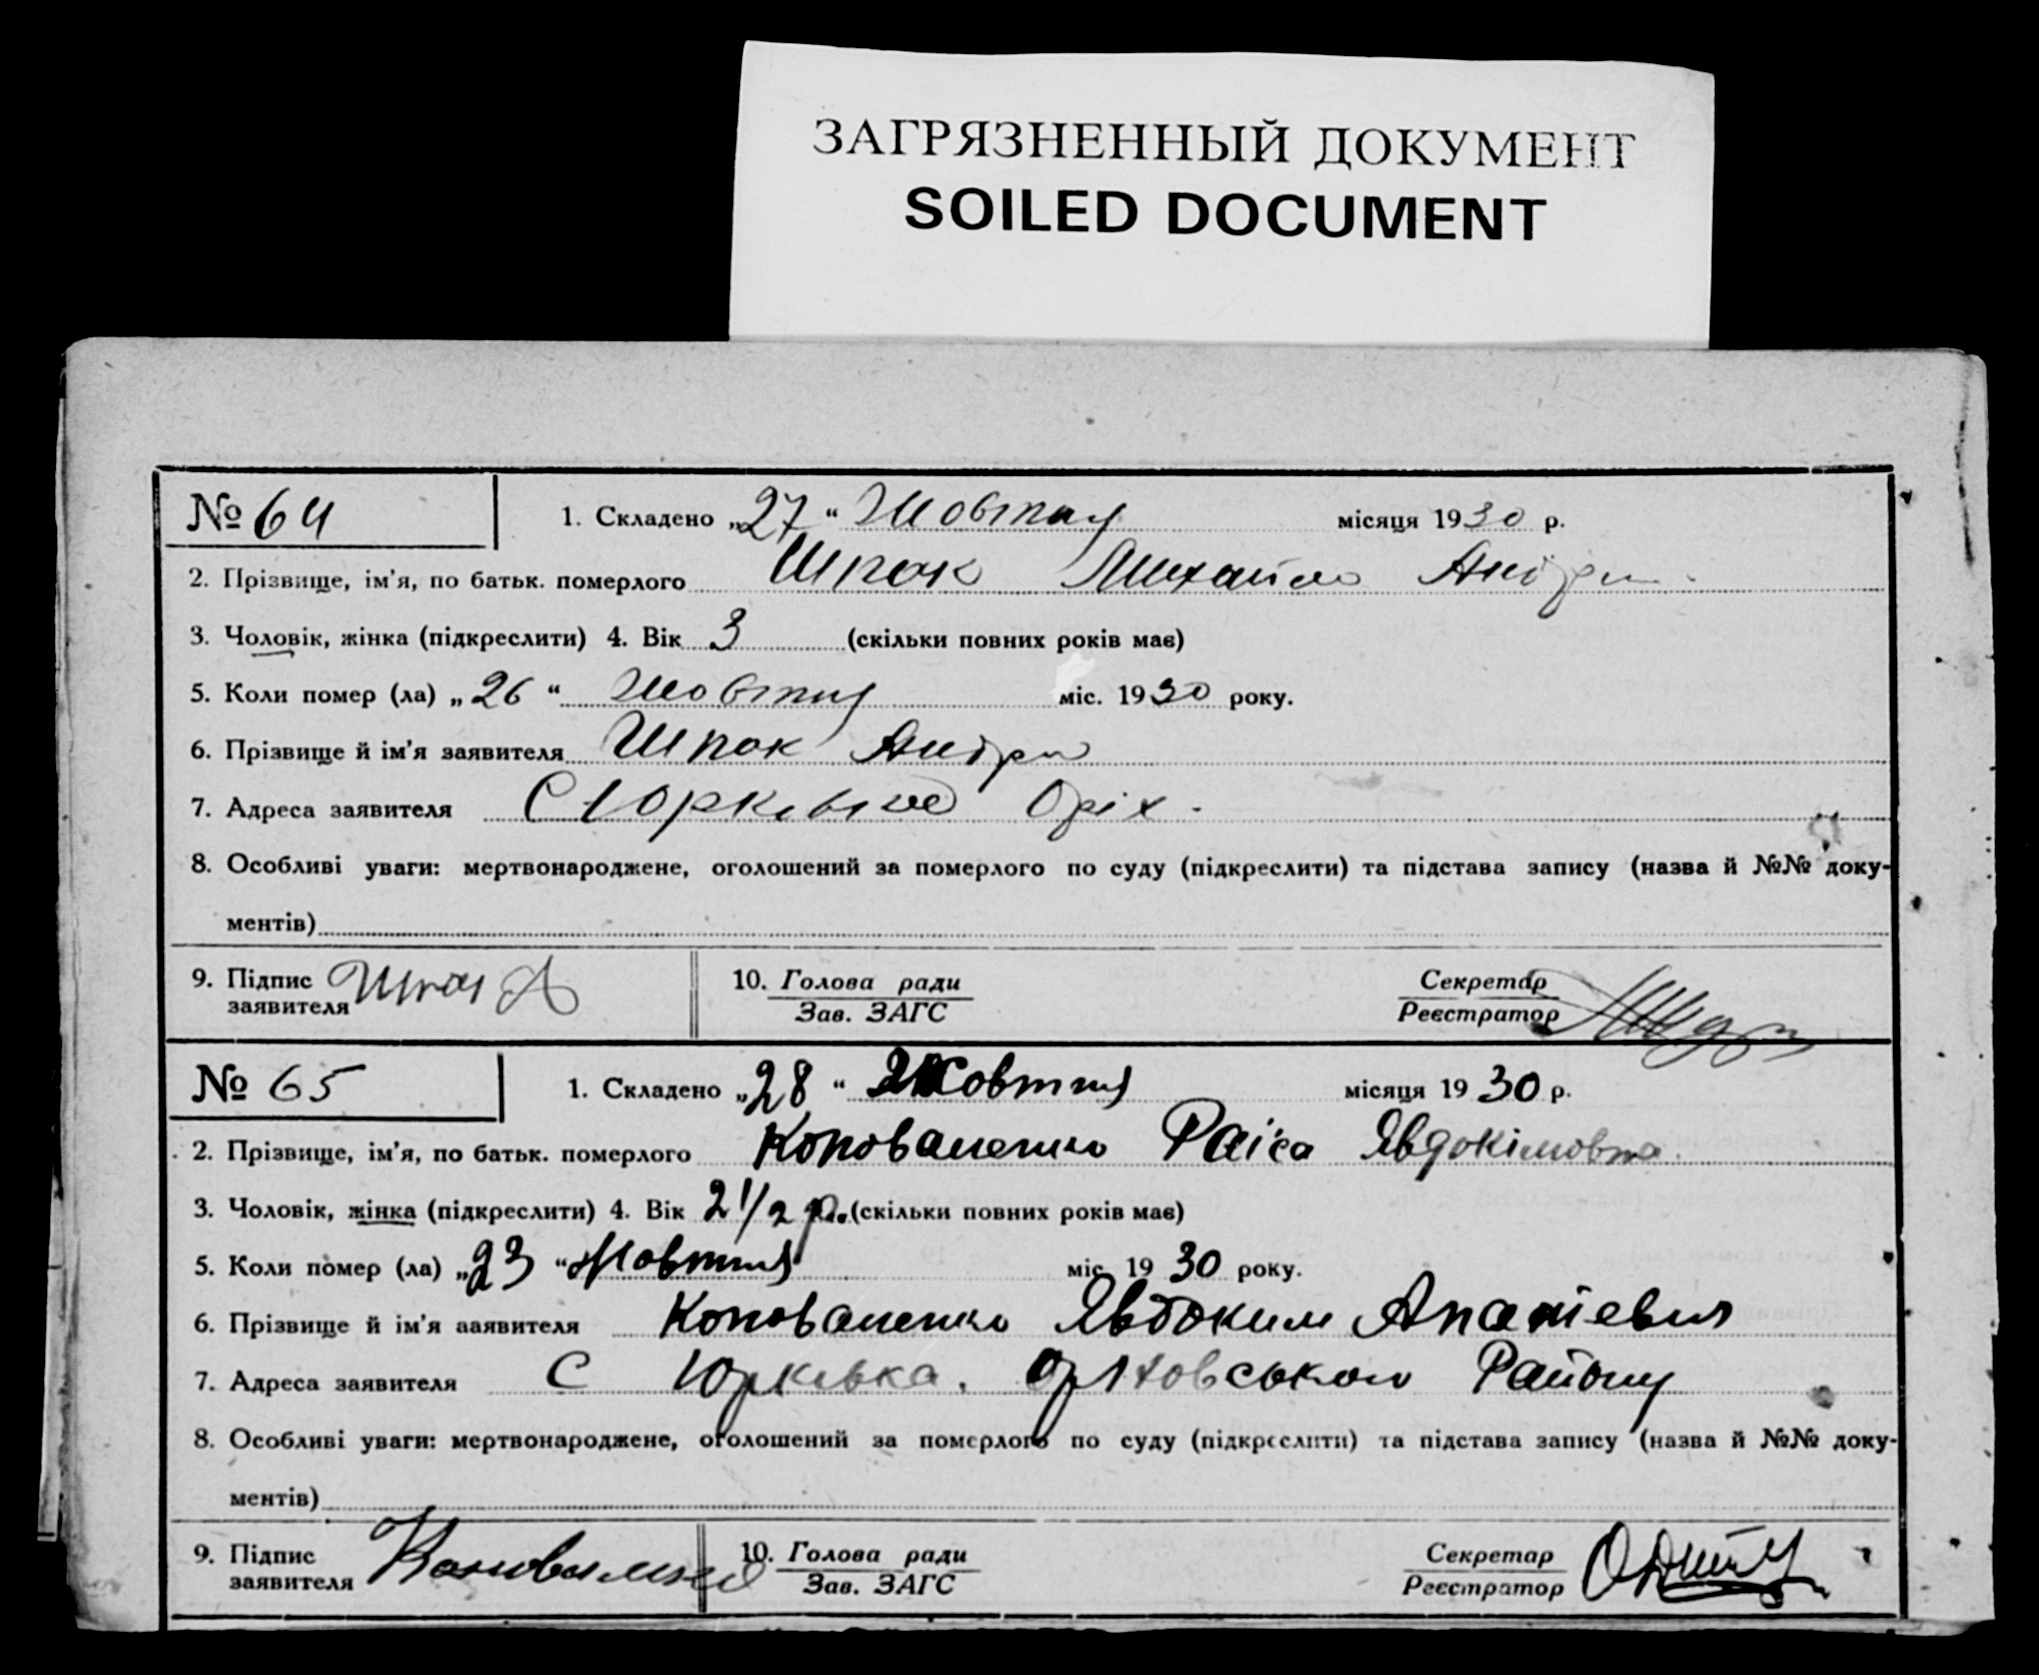 ЗАГРЯЗНЕННЫЙ ДОКУМЕНТ
SOILED DOCUMENT
№ 64 1. Складено „27“ Жовтня місяця 1930 р.
2. Прізвище, ім'я, по батьк. померлого Шпак Михайло Андрі
3. Чоловік, жінка (підкреслити) 4. Вік 3 (скільки повних років має)
5. Коли помер (ла) „26“ Жовтня міс. 1930 року.
6. Прізвище й ім'я заявителя Шпак Андрі
7. Адреса заявителя С Юрківка Оріх.
8. Особливі уваги: мертвонароджене, оголошений за померлого по суду (підкреслити) та підстава запису (назва й №№ доку-
ментів)
9. Підпис заявителя Шпак А 10. Голова ради Секретар
Зав. ЗАГС Реєстратор
№ 65 1. Складено „28“ Жовтня місяця 1930 р.
2. Прізвище, ім'я, по батьк. померлого Коноваленко Раїса Явдокімовна
3. Чоловік, жінка (підкреслити) 4. Вік 2 1/2 р. (скільки повних років має)
5. Коли помер (ла) „23“ Жовтня міс. 1930 року.
6. Прізвище й ім'я заявителя Коноваленко Явдоким
7. Адреса заявителя С Юрківка. Оріховського Району
8. Особливі уваги: мертвонароджене, оголошений за померлого по суду (підкреслити) та підстава запису (назва й №№ доку-
ментів)
9. Підпис заявителя 10. Голова ради Секретар
Зав. ЗАГС Реєстратор